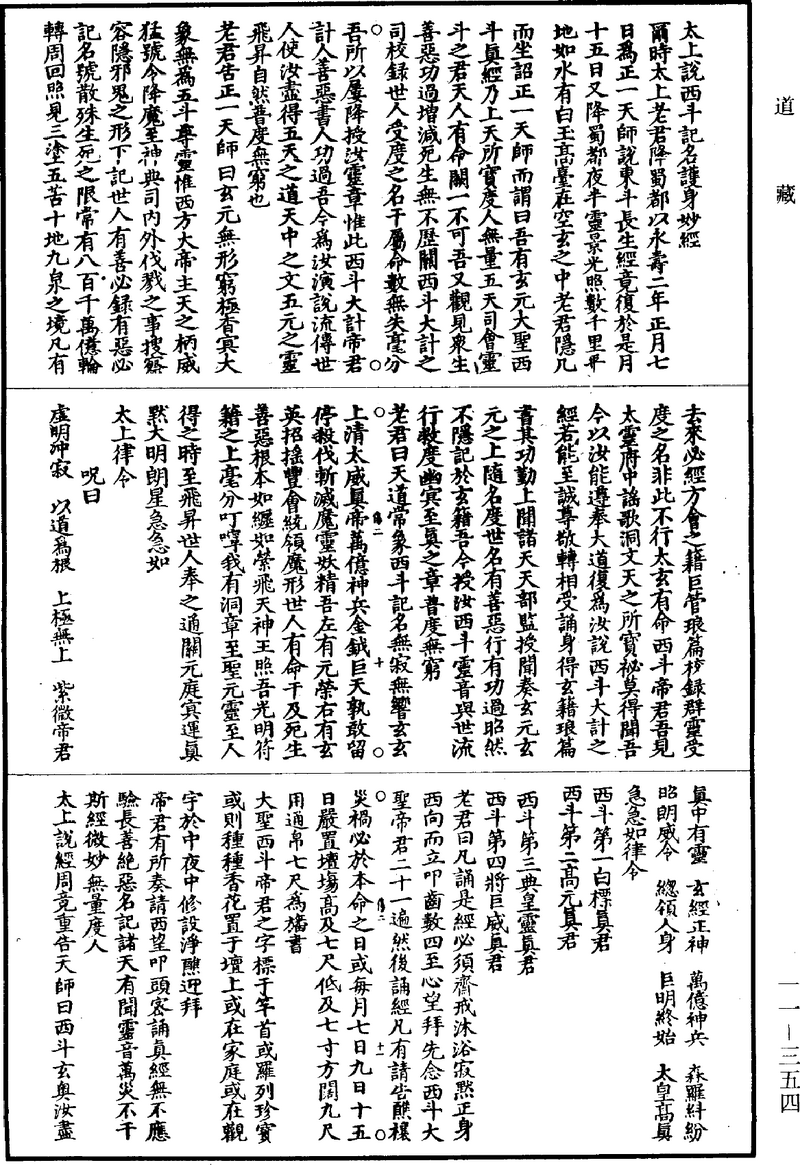 道藏
太上說西斗記名護身妙經
爾時太上老君降蜀都以永壽二年正月七
日為正一天師說東斗長生經竟復於是月
十五日又降蜀都夜半靈景光照數千里平
地如水有白玉高臺在空玄之中老君隱几
而坐詔正一天師而謂曰吾有玄元大聖西
斗真經乃上天所寶度人無量五天司會靈
斗之君天人有命關一不可吾又觀見衆生
善惡功過增減死生無不歷關西斗大計之
司校録世人受度之名于屬命數無失毫分
吾所以屢降授汝靈章惟此西斗大計帝君
計人善惡書人功過吾今為汝演說流傳世
人使汝盡得五天之道天中之文五元之靈
飛昇自然普度無窮也
老君告正一天師曰玄元無形窮極杳冥大
象無為五斗尊靈惟西方大帝主天之柄威
猛號令降魔至神典司內外伐戮之事搜藪
容隱邪鬼之形下記世人有善必録有惡必
記名號散殊生死之限常有八百千萬億輪
轉周回照見三塗五苦十地九泉之境凡有
去來必經方會之籍巨管琅篇抄録群靈受
度之名非此不行太玄有命西斗帝君吾見
太靈府中謠歌洞文天之所寶祕莫得聞吾
今以汝能遵奉大道復為汝說西斗大計之
經若能至誠尊敬轉相受誦身得玄籍琅篇
書其功勤上聞諸天天部監授聞奏玄元玄
元之上隨名度世名有善惡行有功過昭然
不隱記於玄籍吾今授汝西斗靈音與世流
行救度幽冥至真之章普度無窮
老君曰天道常象西斗記名無寂無響玄玄
上清太威真帝萬億神兵金鉞巨天孰敢留
停救伐斬滅魔靈妖精吾左有元榮右有玄
英招搖豐會統領魔形世人有命干及死生
善惡根本如纏如縈飛天神王照吾光明符
籍之上毫分叮嚀我有洞章至聖元靈至人
得之時至飛昇世人奉之通關元庭冥運真
黙大明朗星急急如
太上律令
呪曰
虛明沖寂　以道為根　上極無上　紫微帝君
真中有靈　玄經正神　萬億神兵　森羅糾紛
昭朗威令　總領人身　巨明終始　太皇高真
急急如律令
西斗第一白標真君
西斗第二高元真君
西斗第三典皇靈真君
西斗第四將巨威真君
老君曰凡誦是經必須齋戒沐浴寂黙正身
西向而立叩齒數四至心望拜先念西斗大
聖帝君二十一遍然後誦經凡有請告醮禳
災禍必於本命之日或每月七日九日十五
日嚴置壇場高及七尺低及七寸方闊九尺
用通帛七尺為旛書
大聖西斗帝君之字標于竿首或羅列珍寶
或則種種香花置于壇上或在家庭或在觀
宇於中夜中修設淨醮迎拜
帝君有所奏請西望叩頭密誦真經無不應
驗長善絕惡名記諸天有聞靈音萬災不干
斯經微妙無量度人
太上說經周竟重告天師曰西斗玄奧汝盡
一一–三五四